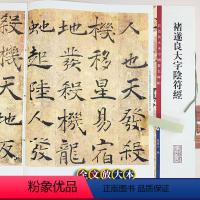 人也天發殺
機移星易宿
地發殺機龍
蛇起陸人發
殺機天地
褚遂良大字陰符經
全文放大本